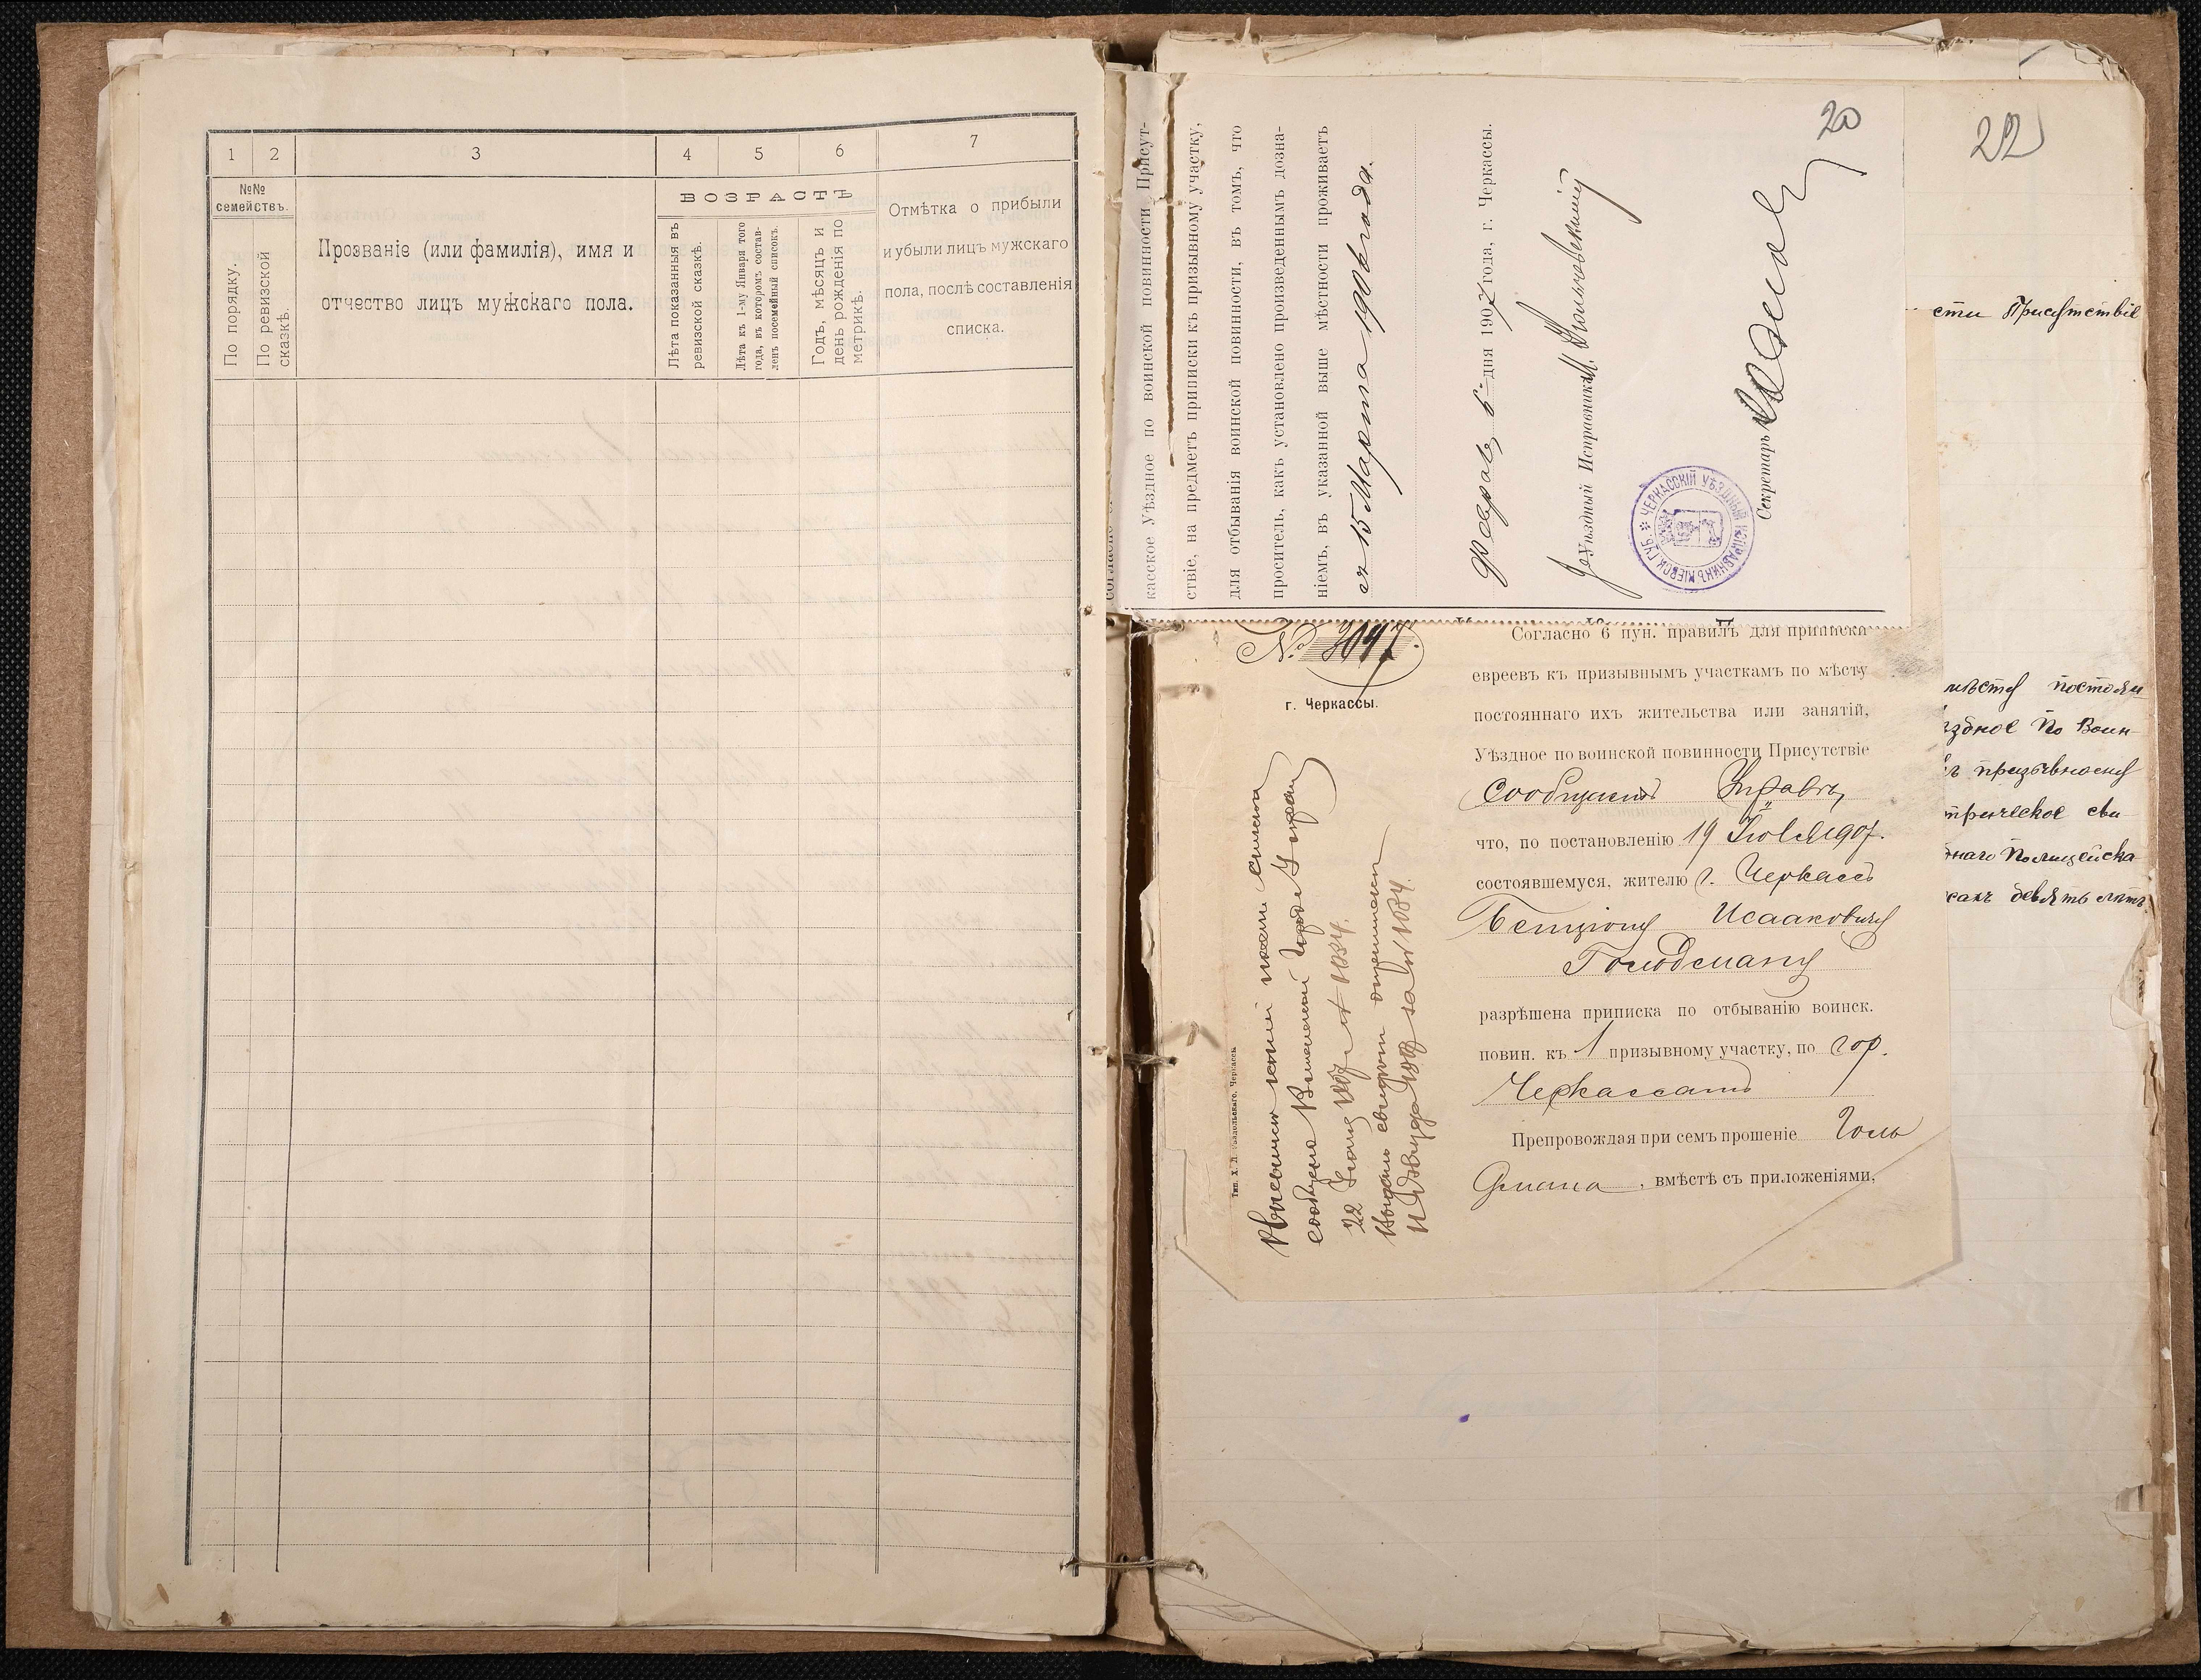 1
2
3
4
5
6
7
№№
семействъ.
ВОЗРАСТЪ
По порядку.
По ревизской
сказкѣ.
Прозваніе (или фамилія), имя и
отчество лицъ мужскаго пола.
Лѣта показанныя въ
ревизской сказкѣ.
Лѣта къ 1-му Января того
года, въ которомъ состав-
ленъ посемейный списокъ.
Годъ, мѣсяцъ и
день рожденія по
метрикѣ.
Отмѣтка о прибыли
и убыли лицъ мужскаго
пола, послѣ составленія
списка.
касское Уѣздное по воинской повинности Присут-
ствіе, на предметъ приписки къ призывному участку,
для отбыванія воинской повинности, въ томъ, что
проситель, какъ установлено произведеннымъ дозна-
ніемъ, въ указанной выше мѣстности проживаетъ
съ 15 Марта 1906 года.
Феврал 5 дня 1907 года, г. Черкассы.
Уѣздный Исправникъ
ЧЕРКАССКІЙ УѢЗДНЫЙ ИСПРАВНИКЪ КІЕВСКОЙ ГУБ.
Секретарь
20
22
сти Присутствіе
мѣсту постоян
ѣздное По Воин-
ъ призывному
трическое сви
наго Полицейска
сахъ девять лѣтъ
№ 3047.
г. Черкассы.
Согласно 6 пун. правилъ для приписки
евреевъ къ призывнымъ участкамъ по мѣсту
постояннаго ихъ жительства или занятій,
Уѣздное по воинской повинности Присутствіе
сообщаетъ Управѣ,
что, по постановленію 19 Іюля 1907.
состоявшемуся, жителю г. Черкассъ
Бенціону Исааковичу
Гольдману
разрѣшена приписка по отбыванію воинск.
повин. къ 1 призывному участку, по гор.
Черкассамъ
Препровождая при семъ прошеніе Голь
дмана, вмѣстѣ съ приложеніями,
22 1907 1084.
за № 1084.